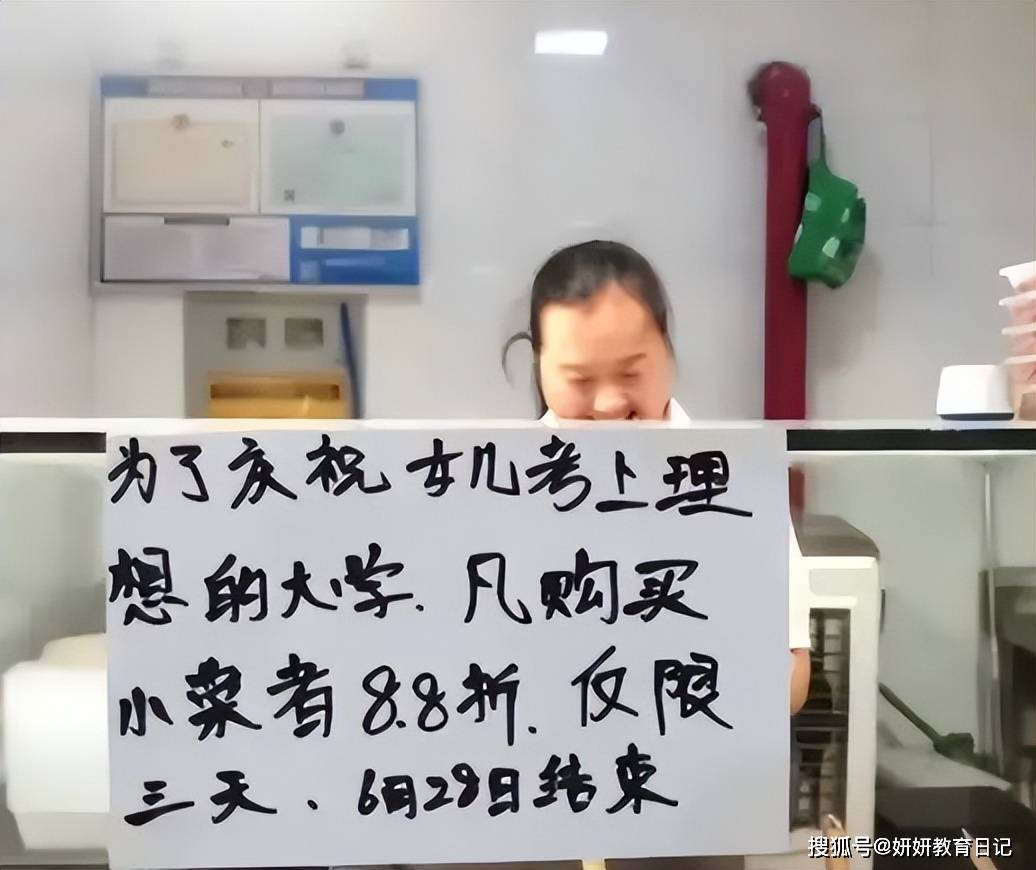 为了庆祝女儿考上理
想的大学.凡购买
小菜者8.8折.仅限
三天、6月29日结束
搜狐号@妍妍教育日记